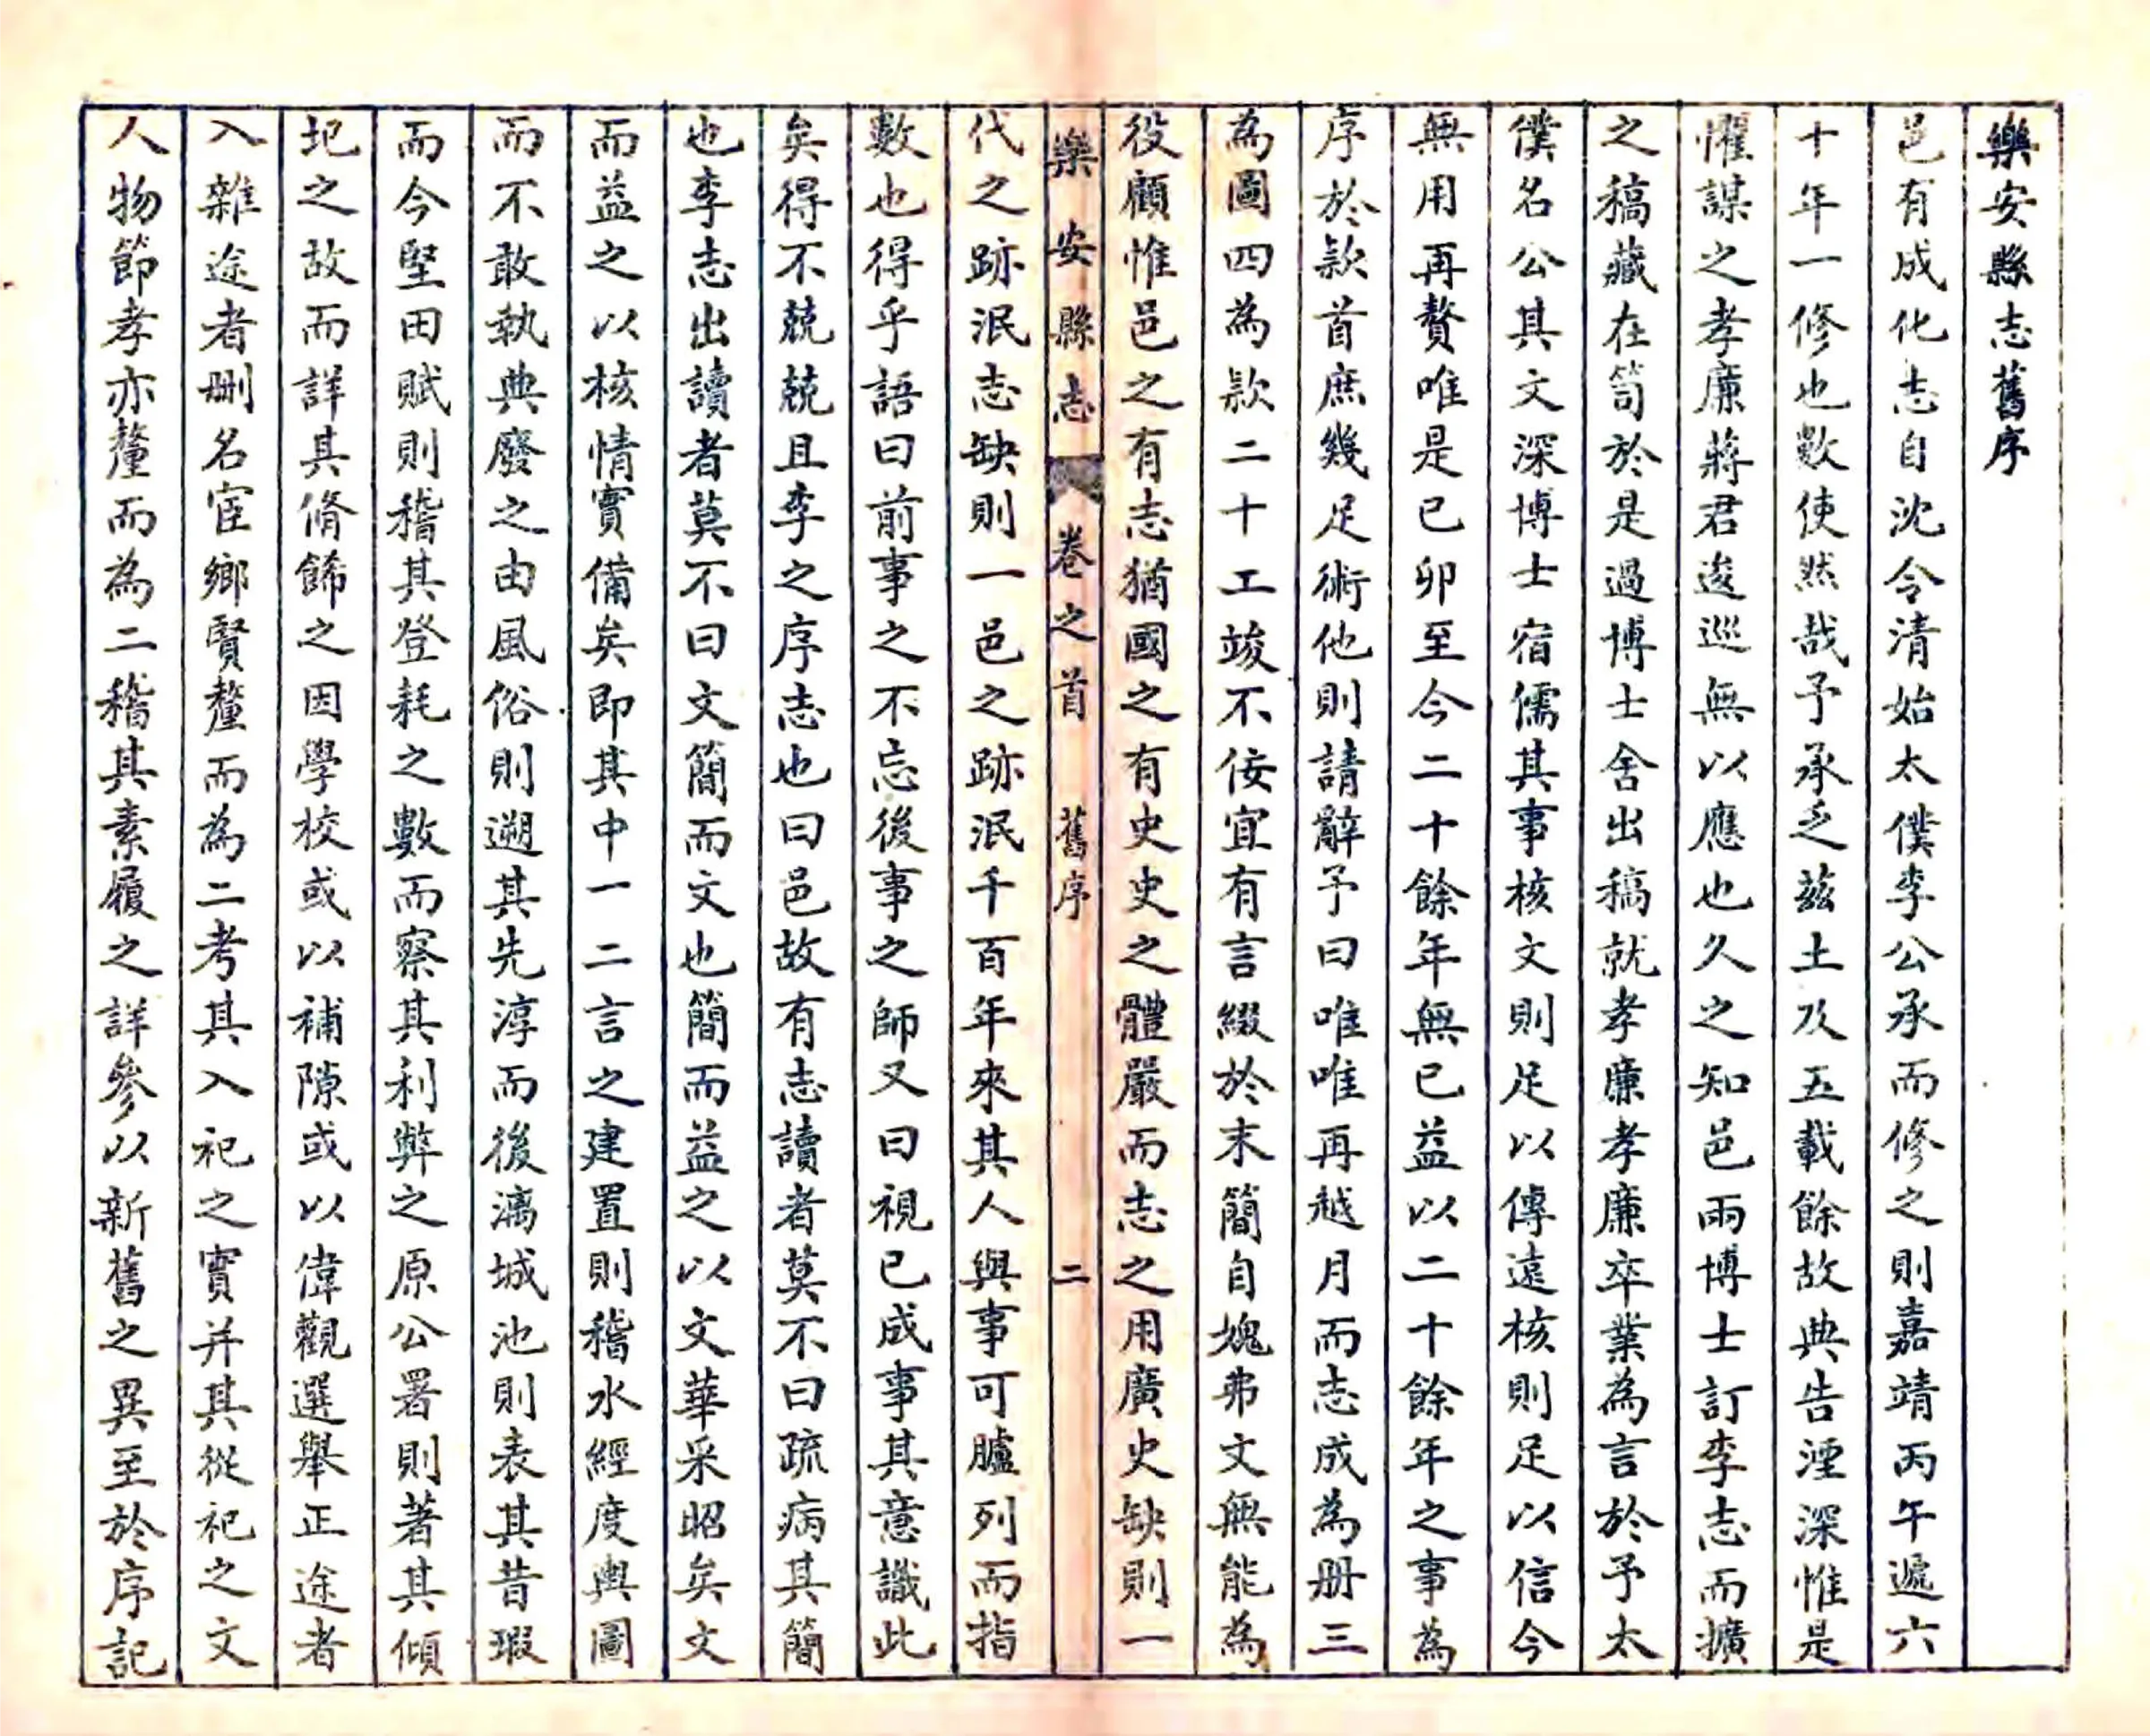 樂安縣志舊序
邑有成化志自沈令清始太僕李公承而修之則嘉靖丙午遞六
十年一修也數使然哉予承乏茲土及五載餘故典告湮深惟是
懼謀之孝廉蔣君逡巡無以應也久之知邑兩博士訂李志而擴
之稿藏在笥於是過博士舍出稿就孝廉孝廉卒業為言於予太
僕名公其文深博士宿儒其事核文則足以傳遠核則足以信今
無用再贅唯是己卯至今二十餘年無已益以二十餘年之事為
序於款首庶幾足術他則請辭予曰唯唯再越月而志成為册三
為圖四為款二十工竣不佞宜有言綴於末簡自媿弗文無能為
役顧惟邑之有志猶國之有史史之體嚴而志之用廣史缺則一
樂安縣志 卷之首 舊序 二
代之跡泯志缺則一邑之跡泯千百年來其人與事可臚列而指
數也得乎語曰前事之不忘後事之師又曰視已成事其意識此
矣得不兢兢且李之序志也曰邑故有志讀者莫不曰疏病其簡
也李志出讀者莫不曰文簡而文也簡而益之以文華采昭矣文
而益之以核情實備矣即其中一二言之建置則稽水經度輿圖
而不敢執典廢之由風俗則遡其先淳而後漓城池則表其昔瑕
而今堅田賦則稽其登耗之數而察其利弊之原公署則著其傾
圮之故而詳其脩餙之因學校或以補隙或以偉觀選舉正途者
入雜途者刪名宦鄉賢釐而為二考其入祀之實并其從祀之文
人物節孝亦釐而為二稽其素履之詳參以新舊之異至於序記